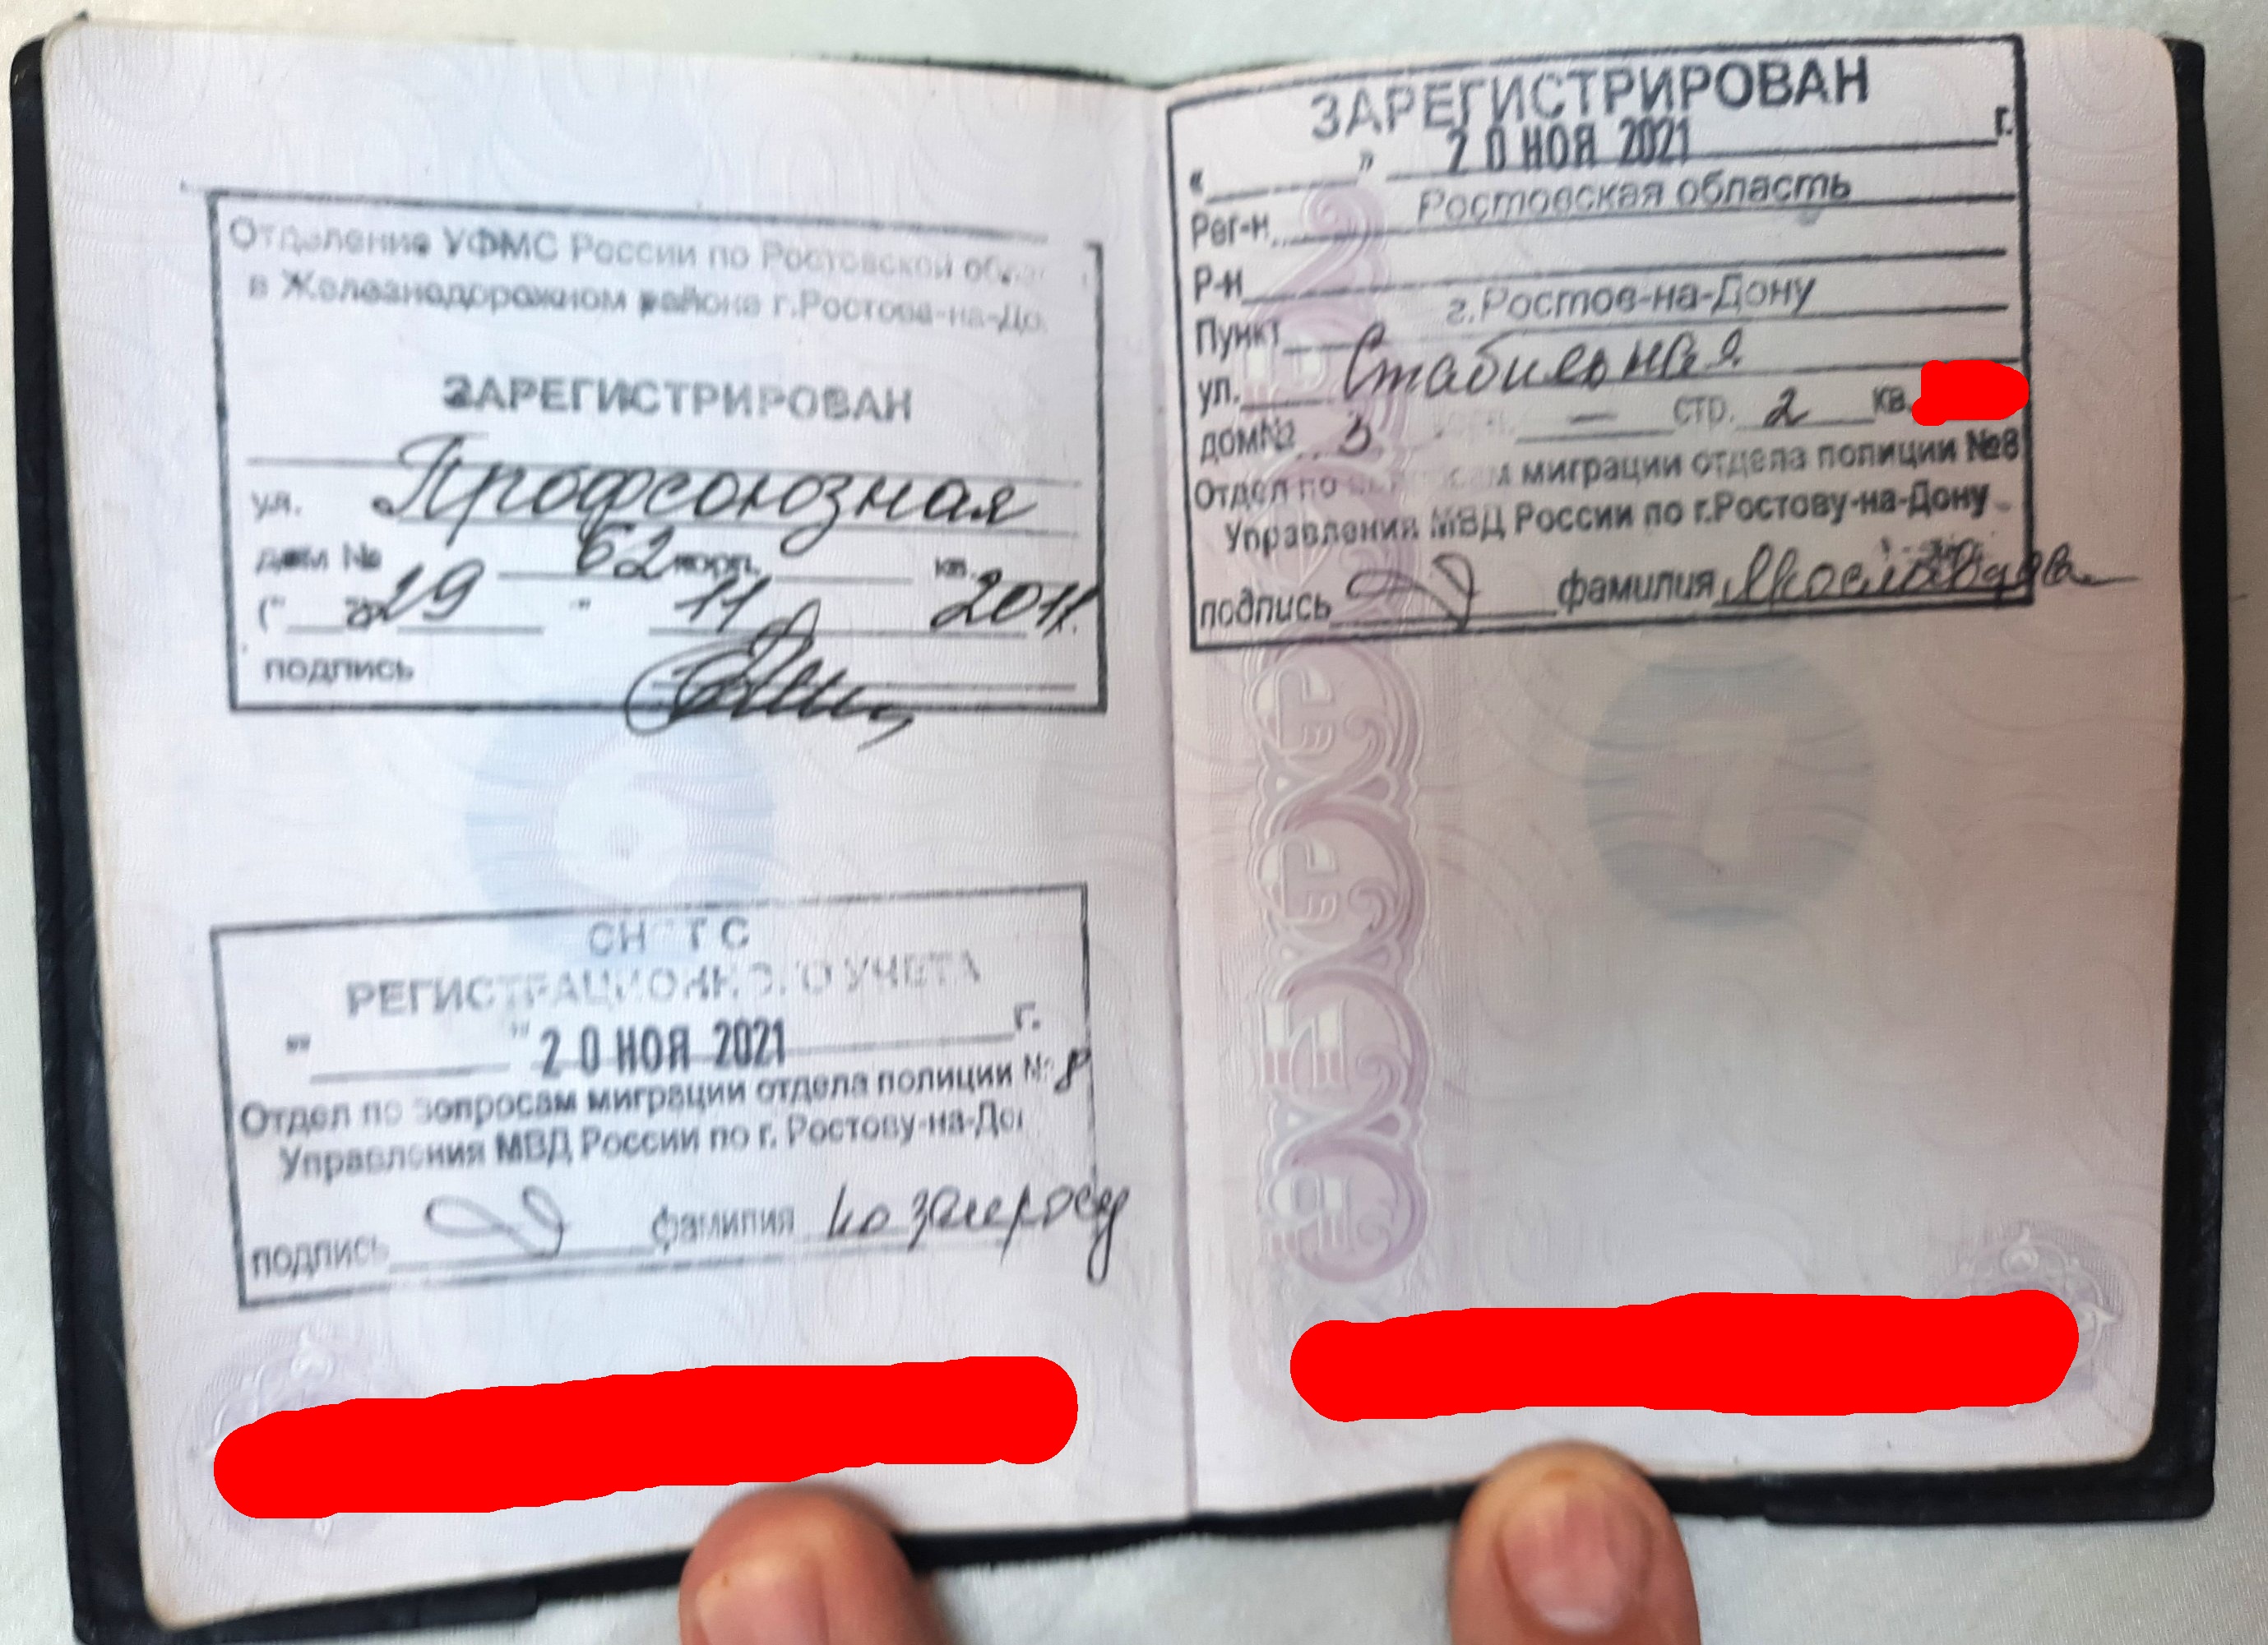 Отделение УФМС России по Ростовской
в Железнодорожном районе г.Ростова-на-До
ЗАРЕГИСТРИРОВАН
ул. Профсоюзная
дом № 62 корп. кв.
29 " 11 2011г.
подпись
СНЯТ С
РЕГИСТРАЦИОННОГО УЧЕТА
" " 20 НОЯ 2021 г.
Отдел по вопросам миграции отдела полиции № 8
Управления МВД России по г. Ростову-на-До
подпись фамилия по запросу
ЗАРЕГИСТРИРОВАН
« » 20 НОЯ 2021 г.
Рег-н Ростовская область
Р-н
Пункт г.Ростов-на-Дону
ул. Стабильная
дом№ 3 корп. — стр. 2 кв.
Отдел по вопросам миграции отдела полиции №8
Управления МВД России по г.Ростову-на-Дону
подпись фамилия